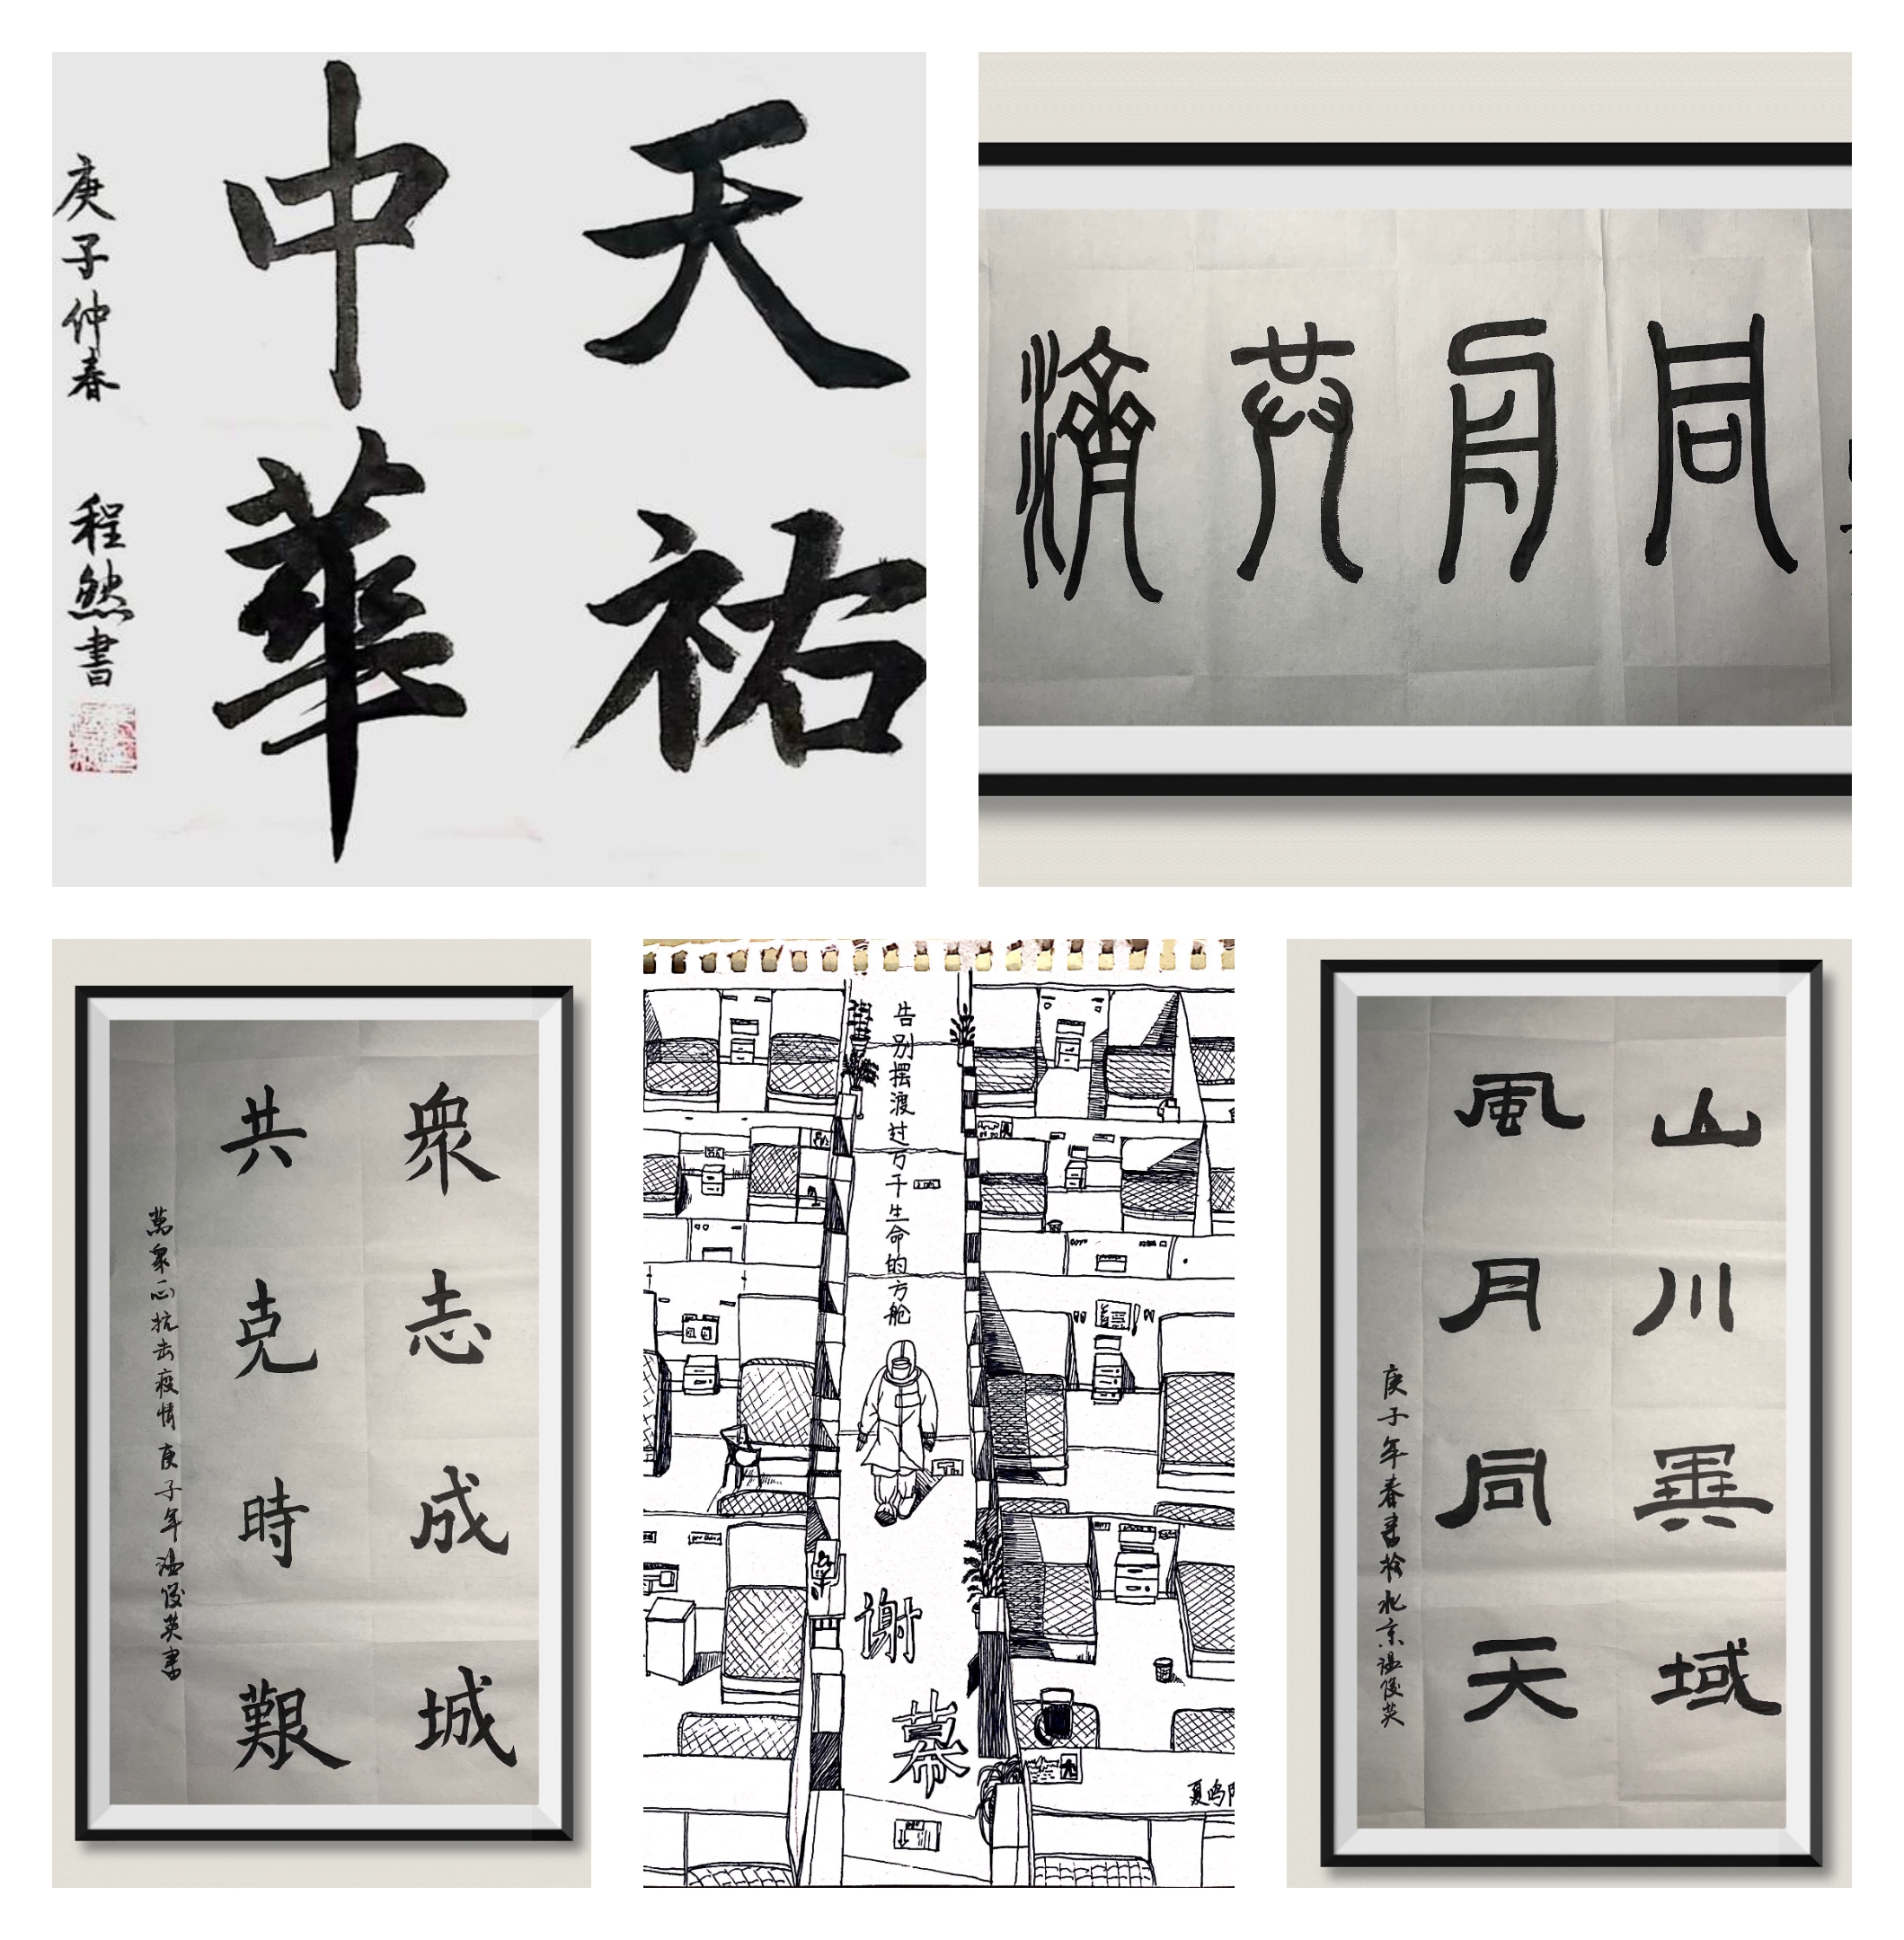 天祐
中華
庚子仲春 程然書
同舟共濟
衆志成城
共克時艱
萬衆一心抗击疫情 庚子年温俊英書
告别摆渡过万千生命的方舱
谢幕
夏鸣
山川異域
風月同天
庚子年春書於北京温俊英